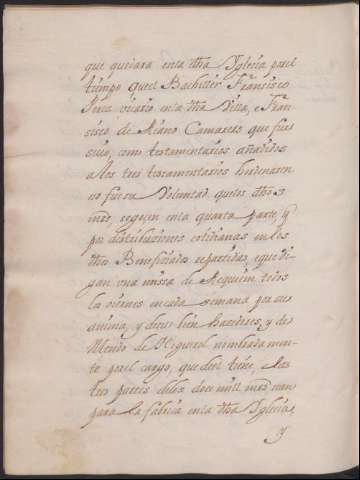 que quedara en la dha Iglesia por el
tiempo quel Bachiller Francisco
Perez vicario en la dha Villa, e Fran-
cisco de Camarero que fue
suio, como testamentarios añadidos
a los tres testamentarios hordenaren
no fue su Voluntad que los dhos
mrs, en la quarta parte, y
por distribuciones cotidianas en los
dhos Beneficiados repartidas, e que di-
gan una missa de Requiem todos
los viernes en cada semana por su
anima, y de sus bien hazedores, y de
Mendo de nombrada men-
te por el cargo, que del tiene, e las
tres partes de los doce mill mrs sean
para la fabrica en la dha Iglesia,
y